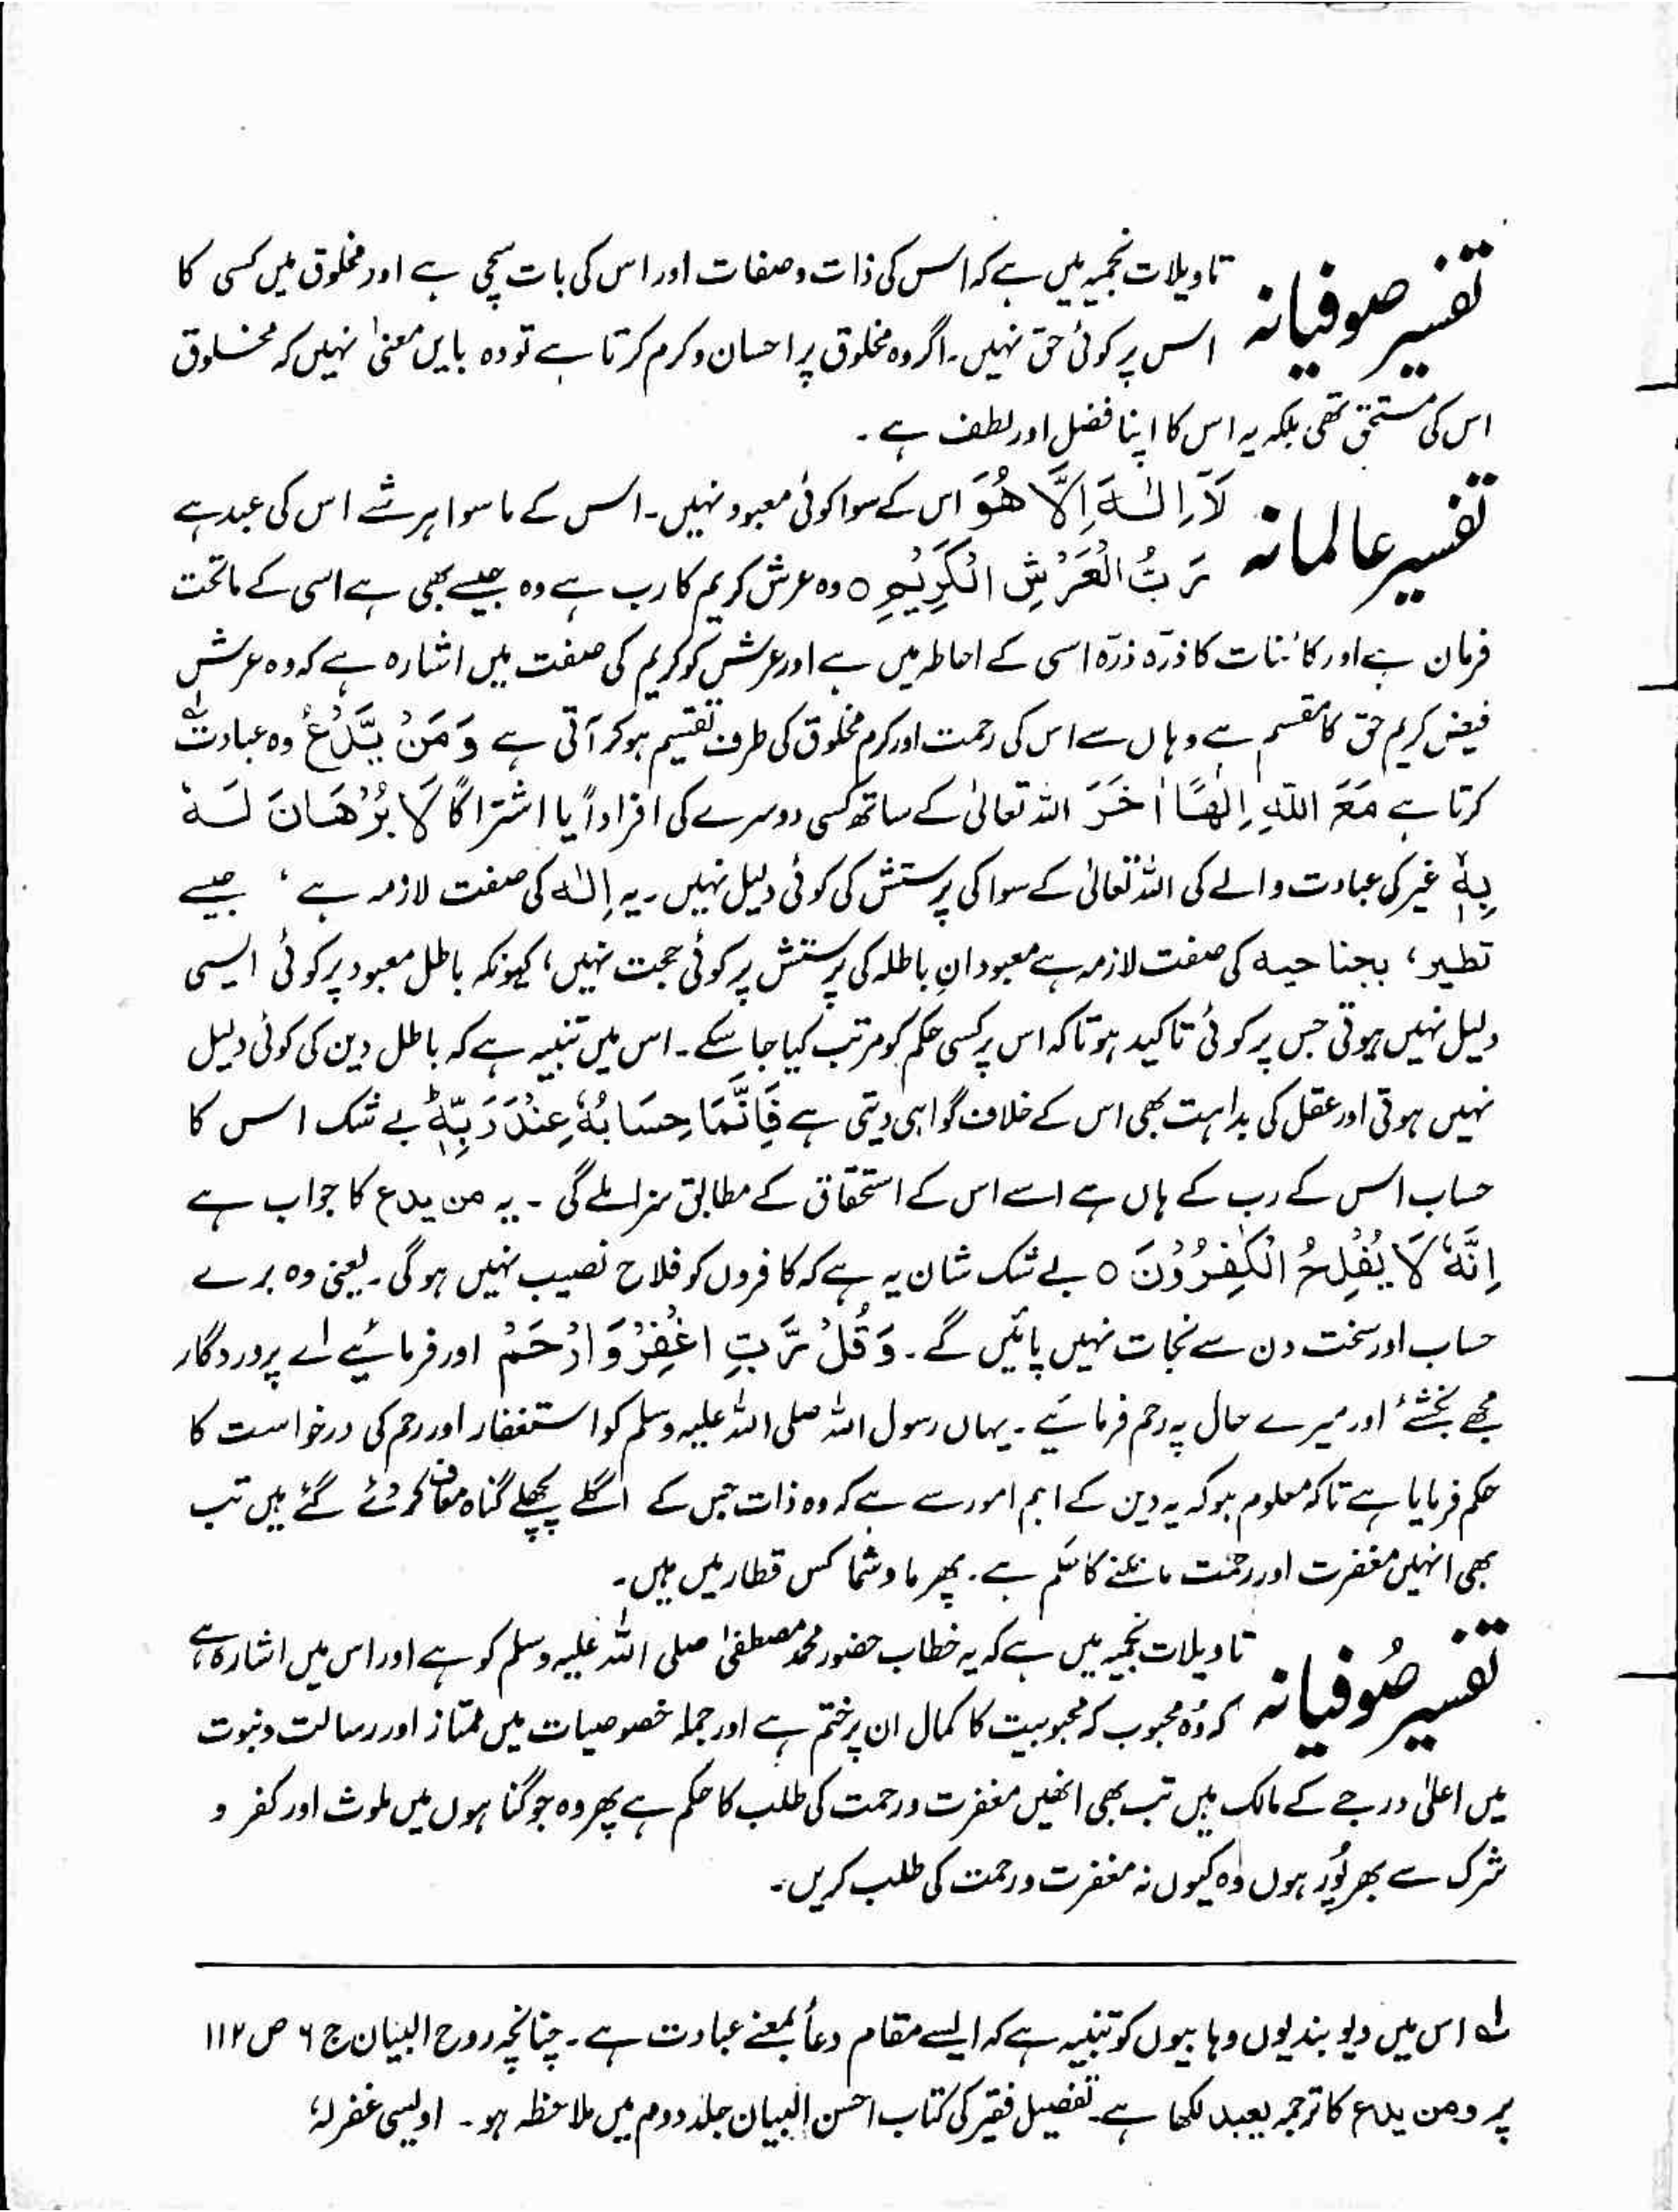 تفسیر صوفیانہ تاویلات نجمیہ میں ہے کہ اس کی ذات و صفات اور اس کی بات سچی ہے اور مخلوق میں کسی کا
اس پر کوئی حق نہیں۔ اگر وہ مخلوق پر احسان و کرم کرتا ہے تو وہ بایں معنیٰ نہیں کہ مخلوق
اس کی مستحق تھی بلکہ یہ اس کا اپنا فضل اور لطف ہے۔
تفسیر عالمانہ لَآ اِلٰہَ اِلَّا ھُوَ اس کے سوا کوئی معبود نہیں۔ اس کے ماسوا ہر شے اس کی عبد ہے
رَبُّ الْعَرْشِ الْکَرِیْمِ ○ وہ عرش کریم کا رب ہے وہ جیسے بھی ہے اسی کے ماتحت
فرمان ہے اور کائنات کا ذرّہ ذرّہ اسی کے احاطہ میں ہے اور عرش کو کریم کی صفت میں اشارہ ہے کہ وہ عرش
فیض کریم حق کا مقسم ہے وہاں سے اس کی رحمت اور کرم مخلوق کی طرف تقسیم ہو کر آتی ہے وَمَنْ یَّدْعُ وہ عبادت لے
کرتا ہے مَعَ اللّٰہِ اِلٰھًا اٰخَرَ اللہ تعالیٰ کے ساتھ کسی دوسرے کی افراداً یا اشتراکاً لَا بُرْھَانَ لَہٗ
بِہٖ غیر کی عبادت والے کی اللہ تعالیٰ کے سوا کی پرستش کی کوئی دلیل نہیں۔ یہ اِلٰہ کی صفت لازمہ ہے ، جیسے
تطیر ، بجناحیہ کی صفت لازمہ ہے معبودانِ باطلہ کی پرستش پر کوئی حجت نہیں، کیونکہ باطل معبود پر کوئی ایسی
دلیل نہیں ہوتی جس پر کوئی تاکید ہو تاکہ اس پر کسی حکم کو مرتب کیا جا سکے۔ اس میں تنبیہ ہے کہ باطل دین کی کوئی دلیل
نہیں ہوتی اور عقل کی بداہت بھی اس کے خلاف گواہی دیتی ہے فَاِنَّمَا حِسَابُہٗ عِنْدَ رَبِّہٖ ؕ بے شک اس کا
حساب اس کے رب کے ہاں ہے اسے اس کے استحقاق کے مطابق سزا ملے گی ۔ یہ من یدع کا جواب ہے
اِنَّہٗ لَا یُفْلِحُ الْکٰفِرُوْنَ ○ بے شک شان یہ ہے کہ کافروں کو فلاح نصیب نہیں ہوگی۔ یعنی وہ برے
حساب اور سخت دن سے نجات نہیں پائیں گے۔ وَقُلْ رَّبِّ اغْفِرْ وَارْحَمْ اور فرمائیے اے پروردگار
مجھے بخشئے اور میرے حال پہ رحم فرمائیے ۔ یہاں رسول اللہ صلی اللہ علیہ وسلم کو استغفار اور رحم کی درخواست کا
حکم فرمایا ہے تاکہ معلوم ہو کہ یہ دین کے اہم امور سے ہے کہ وہ ذات جس کے اگلے پچھلے گناہ معاف کر دئے گئے ہیں تب
بھی انہیں مغفرت اور رحمت مانگنے کا حکم ہے۔ پھر ما و شما کس قطار میں ہیں۔
تفسیر صُوفیانہ تاویلات نجمیہ میں ہے کہ یہ خطاب حضور محمد مصطفیٰ صلی اللہ علیہ وسلم کو ہے اور اس میں اشارہ ہے
کہ وُہ محبوب کہ محبوبیت کا کمال ان پر ختم ہے اور جملہ خصوصیات میں ممتاز اور رسالت و نبوت
میں اعلیٰ درجے کے مالک ہیں تب بھی انھیں مغفرت و رحمت کی طلب کا حکم ہے پھر وہ جو گناہوں میں ملوث اور کفر و
شرک سے بھرپُور ہوں وہ کیوں نہ مغفرت و رحمت کی طلب کریں۔
لے اس میں دیوبندیوں وہابیوں کو تنبیہ ہے کہ ایسے مقام دعاً بمعنے عبادت ہے ۔ چنانچہ روح البیان ج ۶ ص ۱۱۲
پر ومن یدع کا ترجمہ یعبد لکھا ہے۔ تفصیل فقیر کی کتاب احسن البیان جلد دوم میں ملاحظہ ہو ۔ اویسی غفرلہٗ